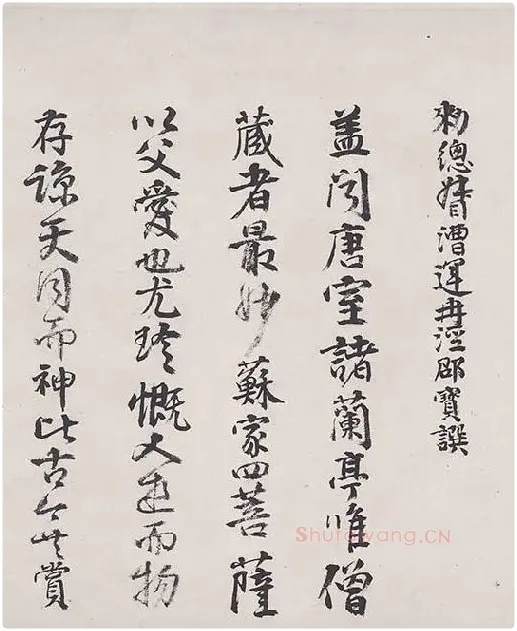 勑總督漕運冉涇邵寶譔
盖聞唐室諸蘭亭惟僧
藏者最妙蘇家四菩薩
以父愛也尤珍慨人逺而物
存諒天而神此古今共賞
Shufawang.CN